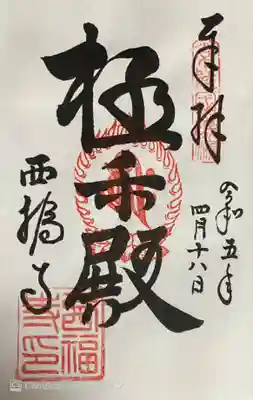 奉拝
令和五年
四月十八日
極楽殿
西福寺
西福
寺印